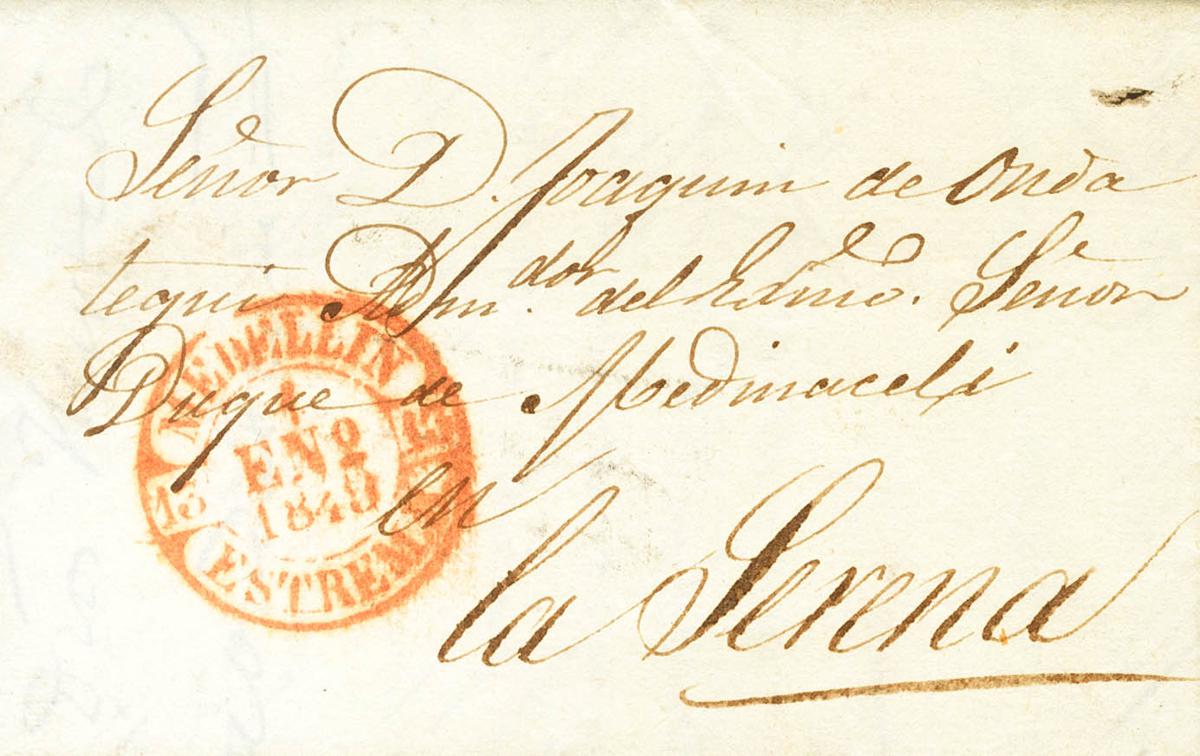 Señor D. Joaquin de Onda
tegui Adm.dor del Exmo. Señor
Duque de Medinaceli
en
la Serena
MEDELLIN
13
ENº
1845
13
ESTREM